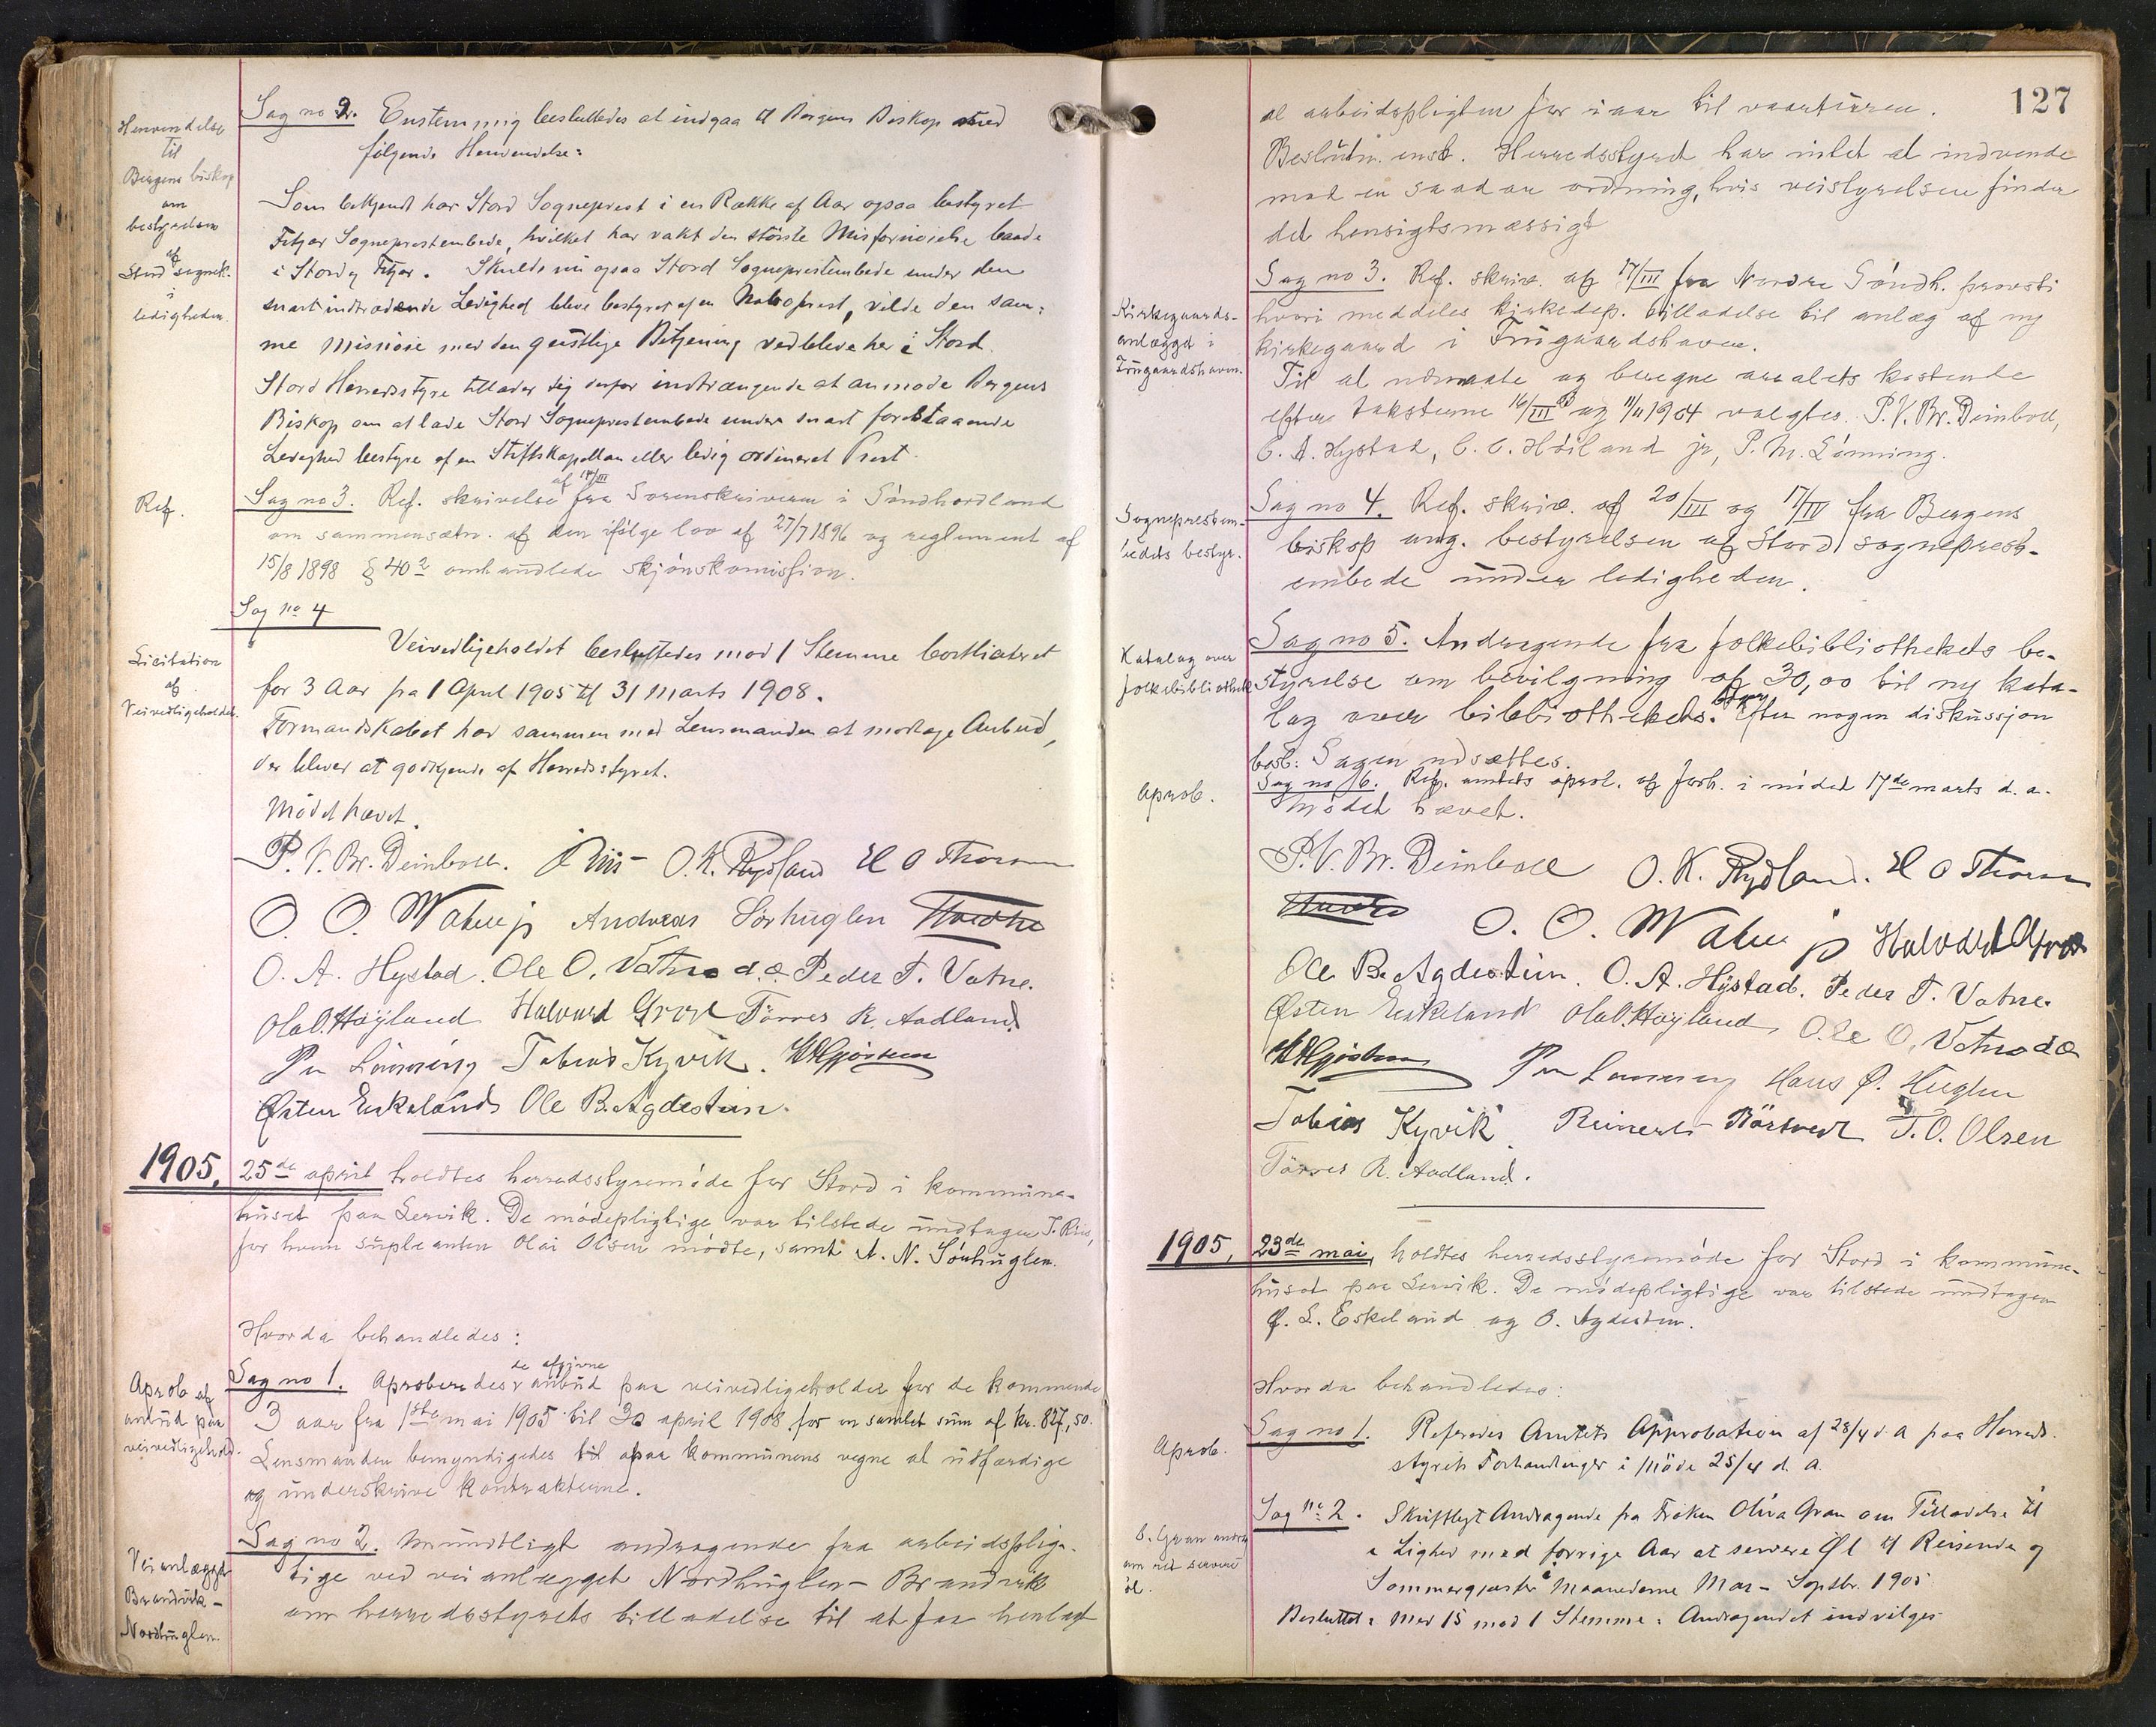 Henvendelse
til
Bergens biskop
om
bestyrelsen
af
Stord sognek.
i
ledigheden.
Sag no 2. Enstemmig besluttedes at indgaa til Bergens Biskop med
følgende Henvendelse:
Som bekjendt har Stord Sogneprest i en Række af Aar ogsaa bestyret
Fitjar Sogneprestembede, hvilket har vakt den største Misfornøielse baade
i Stord og Fitjar. Skulde nu ogsaa Stord Sogneprestembede under den
snart indtrædende Ledighed bleve bestyret af en Naboprest, vilde den sam-
me Missnøie med den geistlige Betjening vedbleve her i Stord.
Stord Herredsstyre tillader sig derfor indtrængende at anmode Bergens
Biskop om at lade Stord Sogneprestembede under snart forestaaende
Ledighed bestyre af en Stiftskapellan eller ledig ordineret Prest.
Ref.
Sag no 3. Ref. skrivelse af 14/III fra Sorenskriveren i Søndhordland
om sammensætn. af den ifølge lov af 27/7 1896 og reglement af
15/8 1898 § 40 2 omhandlede skjønskomission.
Sag no 4
Licitation
af
Veivedligeholdet.
Veivedligeholdet besluttedes mod 1 Stemme bortliciteret
for 3 Aar fra 1 April 1905 til 31 Marts 1908.
Formandskabet har sammen med Lensmanden at modtage Anbud,
der bliver at godkjende af Herredsstyret.
Mødet hævet.
P. V. Br. Deinboll. J Riis O. K. Rydland H O Thorsen
O. O. Watne jr Andreas Sørhuglen
O. A. Hystad. Ole O. Vatne d.æ. Peder T. Vatne.
Ola O. Høyland Halvard Grov Tørres R. Aadland.
P M Lønning Tobias Kyvik.
Østen Eskeland Ole B. Agdestein.
1905. 25de april holdtes herredsstyremøde for Stord i kommune-
huset paa Lervik. De mødepligtige var tilstede undtagen J. Riis,
for hvem supleanten Olai Olsen mødte, samt A. N. Sørhuglen.
Hvorda behandledes:
Aprob af
anbud paa
veivedligehold.
Sag no 1. Aproberedes de afgivne anbud paa veivedligeholdet for de kommende
3 aar fra 1ste mai 1905 til 30 april 1908 for en samlet sum af kr. 827,50.
Lensmanden bemyndigedes til paa kommunens vegne at udfærdige
og underskrive kontrakterne.
Veianlægget
Brandvik-
Nordhuglen.
Sag no 2. Mundtligt andragende fra arbeidsplig-
tige ved veianlægget Nordhuglen - Brandvik
om herredsstyrets tilladelse til at faa henlagt
127
al arbeidspligten for iaar til vaarturen.
Beslutn. enst. Herredsstyret har intet at indvende
mod en saadan ordning, hvis veistyrelsen finder
det hensigtsmæssigt
Kirkegaards-
anlægget i
Frugaardshaven.
Sag no 3. Ref. skriv. af 17/III fra Nordre Søndh. provsti
hvori meddeles kirkedep. tilladelse til anlæg af ny
kirkegaard i Frugaardshaven.
Til at udmaale og beregne arealets kostende
efter taksterne 16/III 03 og 11/II 1904 valgtes P. V. Br. Deinboll,
O. A. Hystad, O. O. Høiland jr, P. M. Lønning.
Sogneprestem-
bedets bestyr.
Sag no 4. Ref. skriv. af 20/III og 17/IV fra Bergens
biskop ang. bestyrelsen af Stord sogneprest-
embede under ledigheden.
Katalog over
folkebibliothek
Sag no 5. Andragende fra folkebibliothekets be-
styrelse om bevilgning af 30,00 til ny kata-
log over bibliothekets. Efter nogen diskussjon
besl: Sagen udsættes.
Aprob.
Sag no 6. Ref. amtets aprob. af forh. i mødet 17de marts d. a.
Mødet hævet.
P. V. Br. Deinboll O. K. Rydland. H O Thorsen
O. O. Watne jr Halvard Grov
Ole B. Agdestein. O. A. Hystad. Peder T. Vatne.
Østen Eskeland Ola O. Høyland, Ole O. Vatne d.æ
P M Lønning Hans Ø. Huglen
Tobias Kyvik. Reinert Børtvedt J. O. Olsen
Tørres R. Aadland.
1905, 23de mai, holdtes herredsstyremøde for Stord i kommune-
huset paa Lervik. De mødepligtige var tilstede undtagen
Ø. L. Eskeland og O. Agdestein.
Hvorda behandledes:
Aprob.
Sag no 1. Referedes Amtets Approbation af 28/4 d. a paa Herreds
styrets Forhandlinger i Møde 25/4 d. a.
O. Gran andr.
om ret servere
øl.
Sag no 2. Skriftligt Andragende fra Frøken Oliva Gran om Tilladelse til
i Lighed med forrige Aar at servere Øl til Reisende og
Sommergjæster i Maanederne Mai - Septbr. 1905
Besluttet: Med 15 mod 1 Stemme: Andragendet indvilges